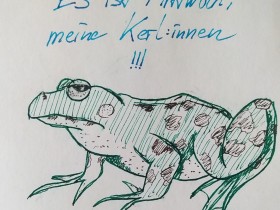 Es ist Mittwoch,
meine Kerl:innen
!!!